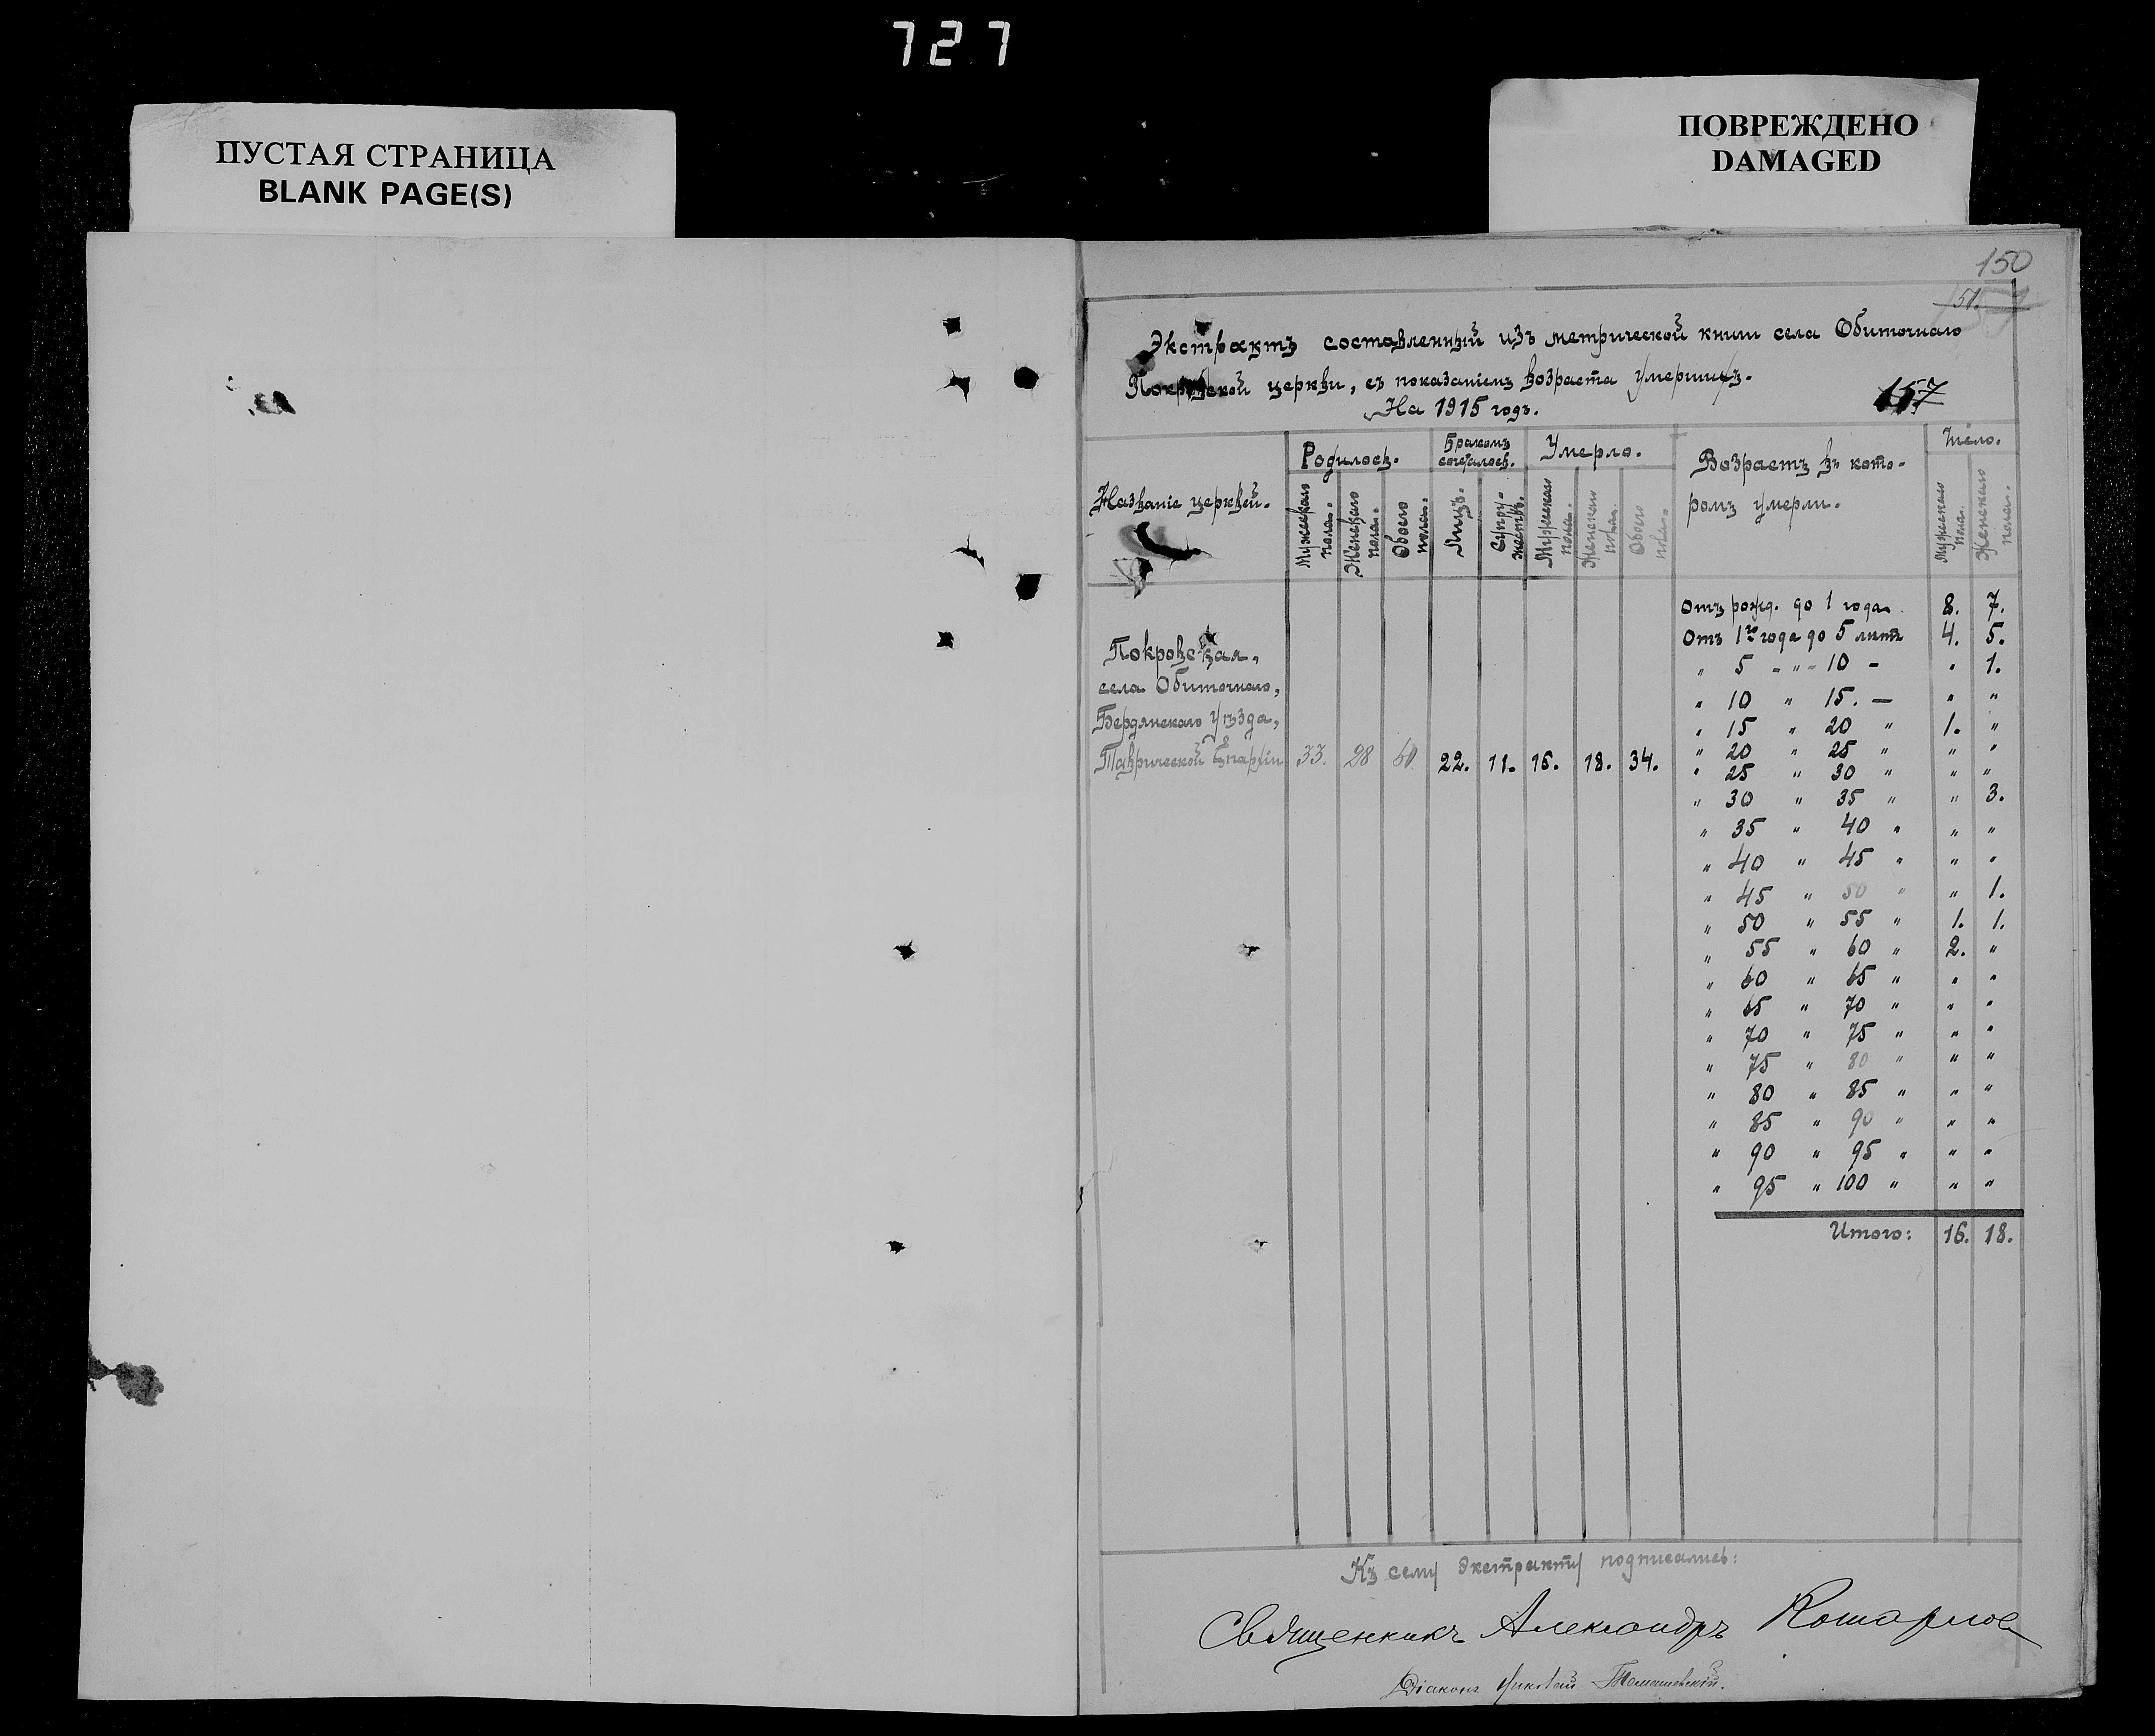 727
ПУСТАЯ СТРАНИЦА
BLANK PAGE(S)
ПОВРЕЖДЕНО
DAMAGED
150
51.
Экстрактъ составленный изъ метрической книги села Обиточнаго
Покровской церкви, съ показаніемъ возраста умершихъ.
На 1915 годъ.
157
Названіе церквей.
Родилось.
Бракомъ сочеталось.
Умерло.
Возрастъ въ кото-
ромъ умерли.
Число.
Мужескаго пола.
Женскаго пола.
Обоего пола.
Лицъ.
Супру-жествъ.
Мужескаго пола.
Женскаго пола.
Обоего пола.
Мужескаго пола.
Женскаго пола.
Отъ рожд. до 1 года 8. 7.
Отъ 1го года до 5 лѣтъ 4. 5.
" 5 " " - 10 - " 1.
" 10 " 15. — " "
" 15 " 20 " 1. "
" 20 " 25 " " "
" 25 " 30 " " "
" 30 " 35 " " 3.
" 35 " 40 " " "
" 40 " 45 " " "
" 45 " 50 " " 1.
" 50 " 55 " 1. 1.
" 55 " 60 " 2. "
" 60 " 65 " " "
" 65 " 70 " " "
" 70 " 75 " " "
" 75 " 80 " " "
" 80 " 85 " " "
" 85 " 90 " " "
" 90 " 95 " " "
" 95 " 100 " " "
Итого: 16. 18.
Покровская,
села Обиточнаго,
Бердянскаго уѣзда,
Таврической Епархіи 33. 28 22. 11. 16. 18. 34.
Къ сему экстракту подписались:
Священникъ Александръ
Діаконъ Николай Томашевскій.